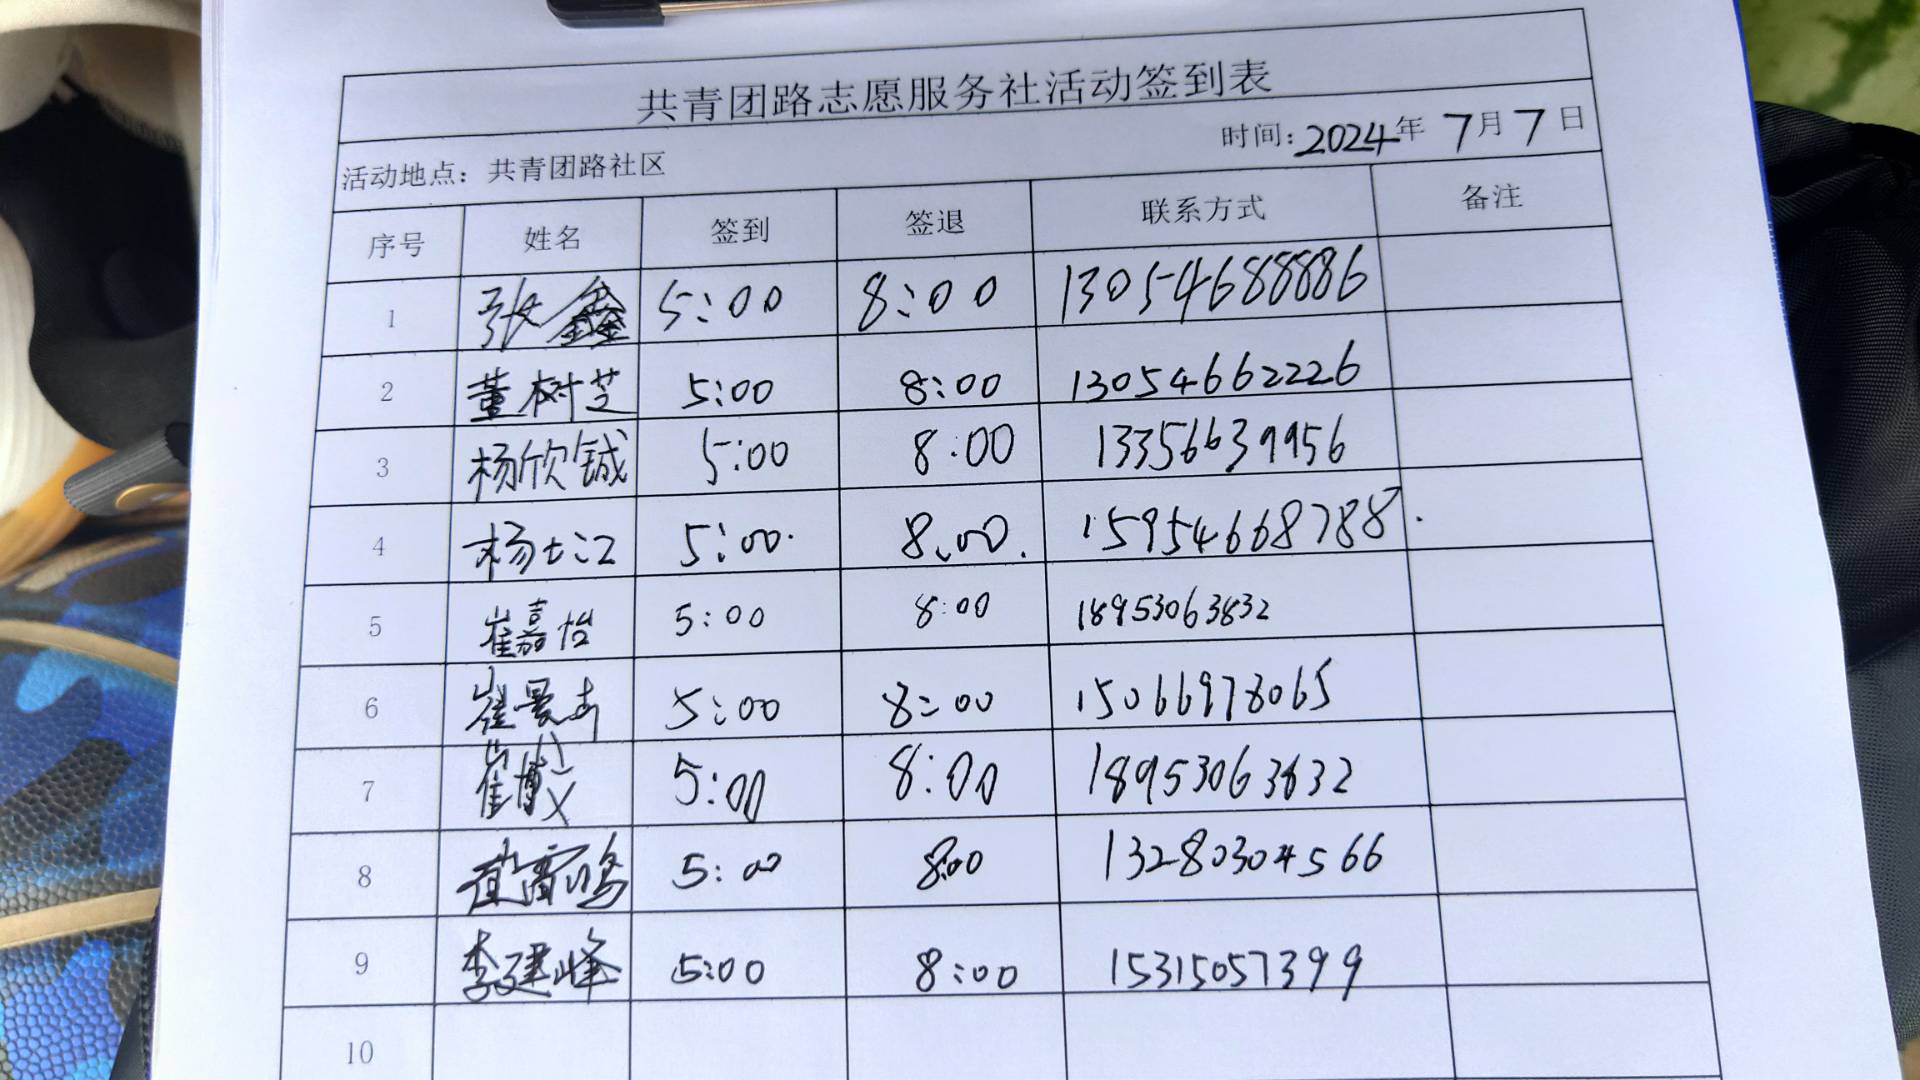 共青团路志愿服务社活动签到表
时间：2024年 7月 7日
活动地点：共青团路社区
序号 姓名 签到 签退 联系方式 备注
1 张鑫 5:00 8:00 13054688886
2 董树芝 5:00 8:00 13054662226
3 杨欣铖 5:00 8:00 13356639956
4 杨士江 5:00. 8.00. 15954668788.
5 崔嘉怡 5:00 8:00 18953063832
6 崔景 5:00 8:00 15066978065
7 崔博文 5:00 8:00 18953063832
8 5:00 8:00 13280304566
9 李建峰 5:00 8:00 15315057399
10